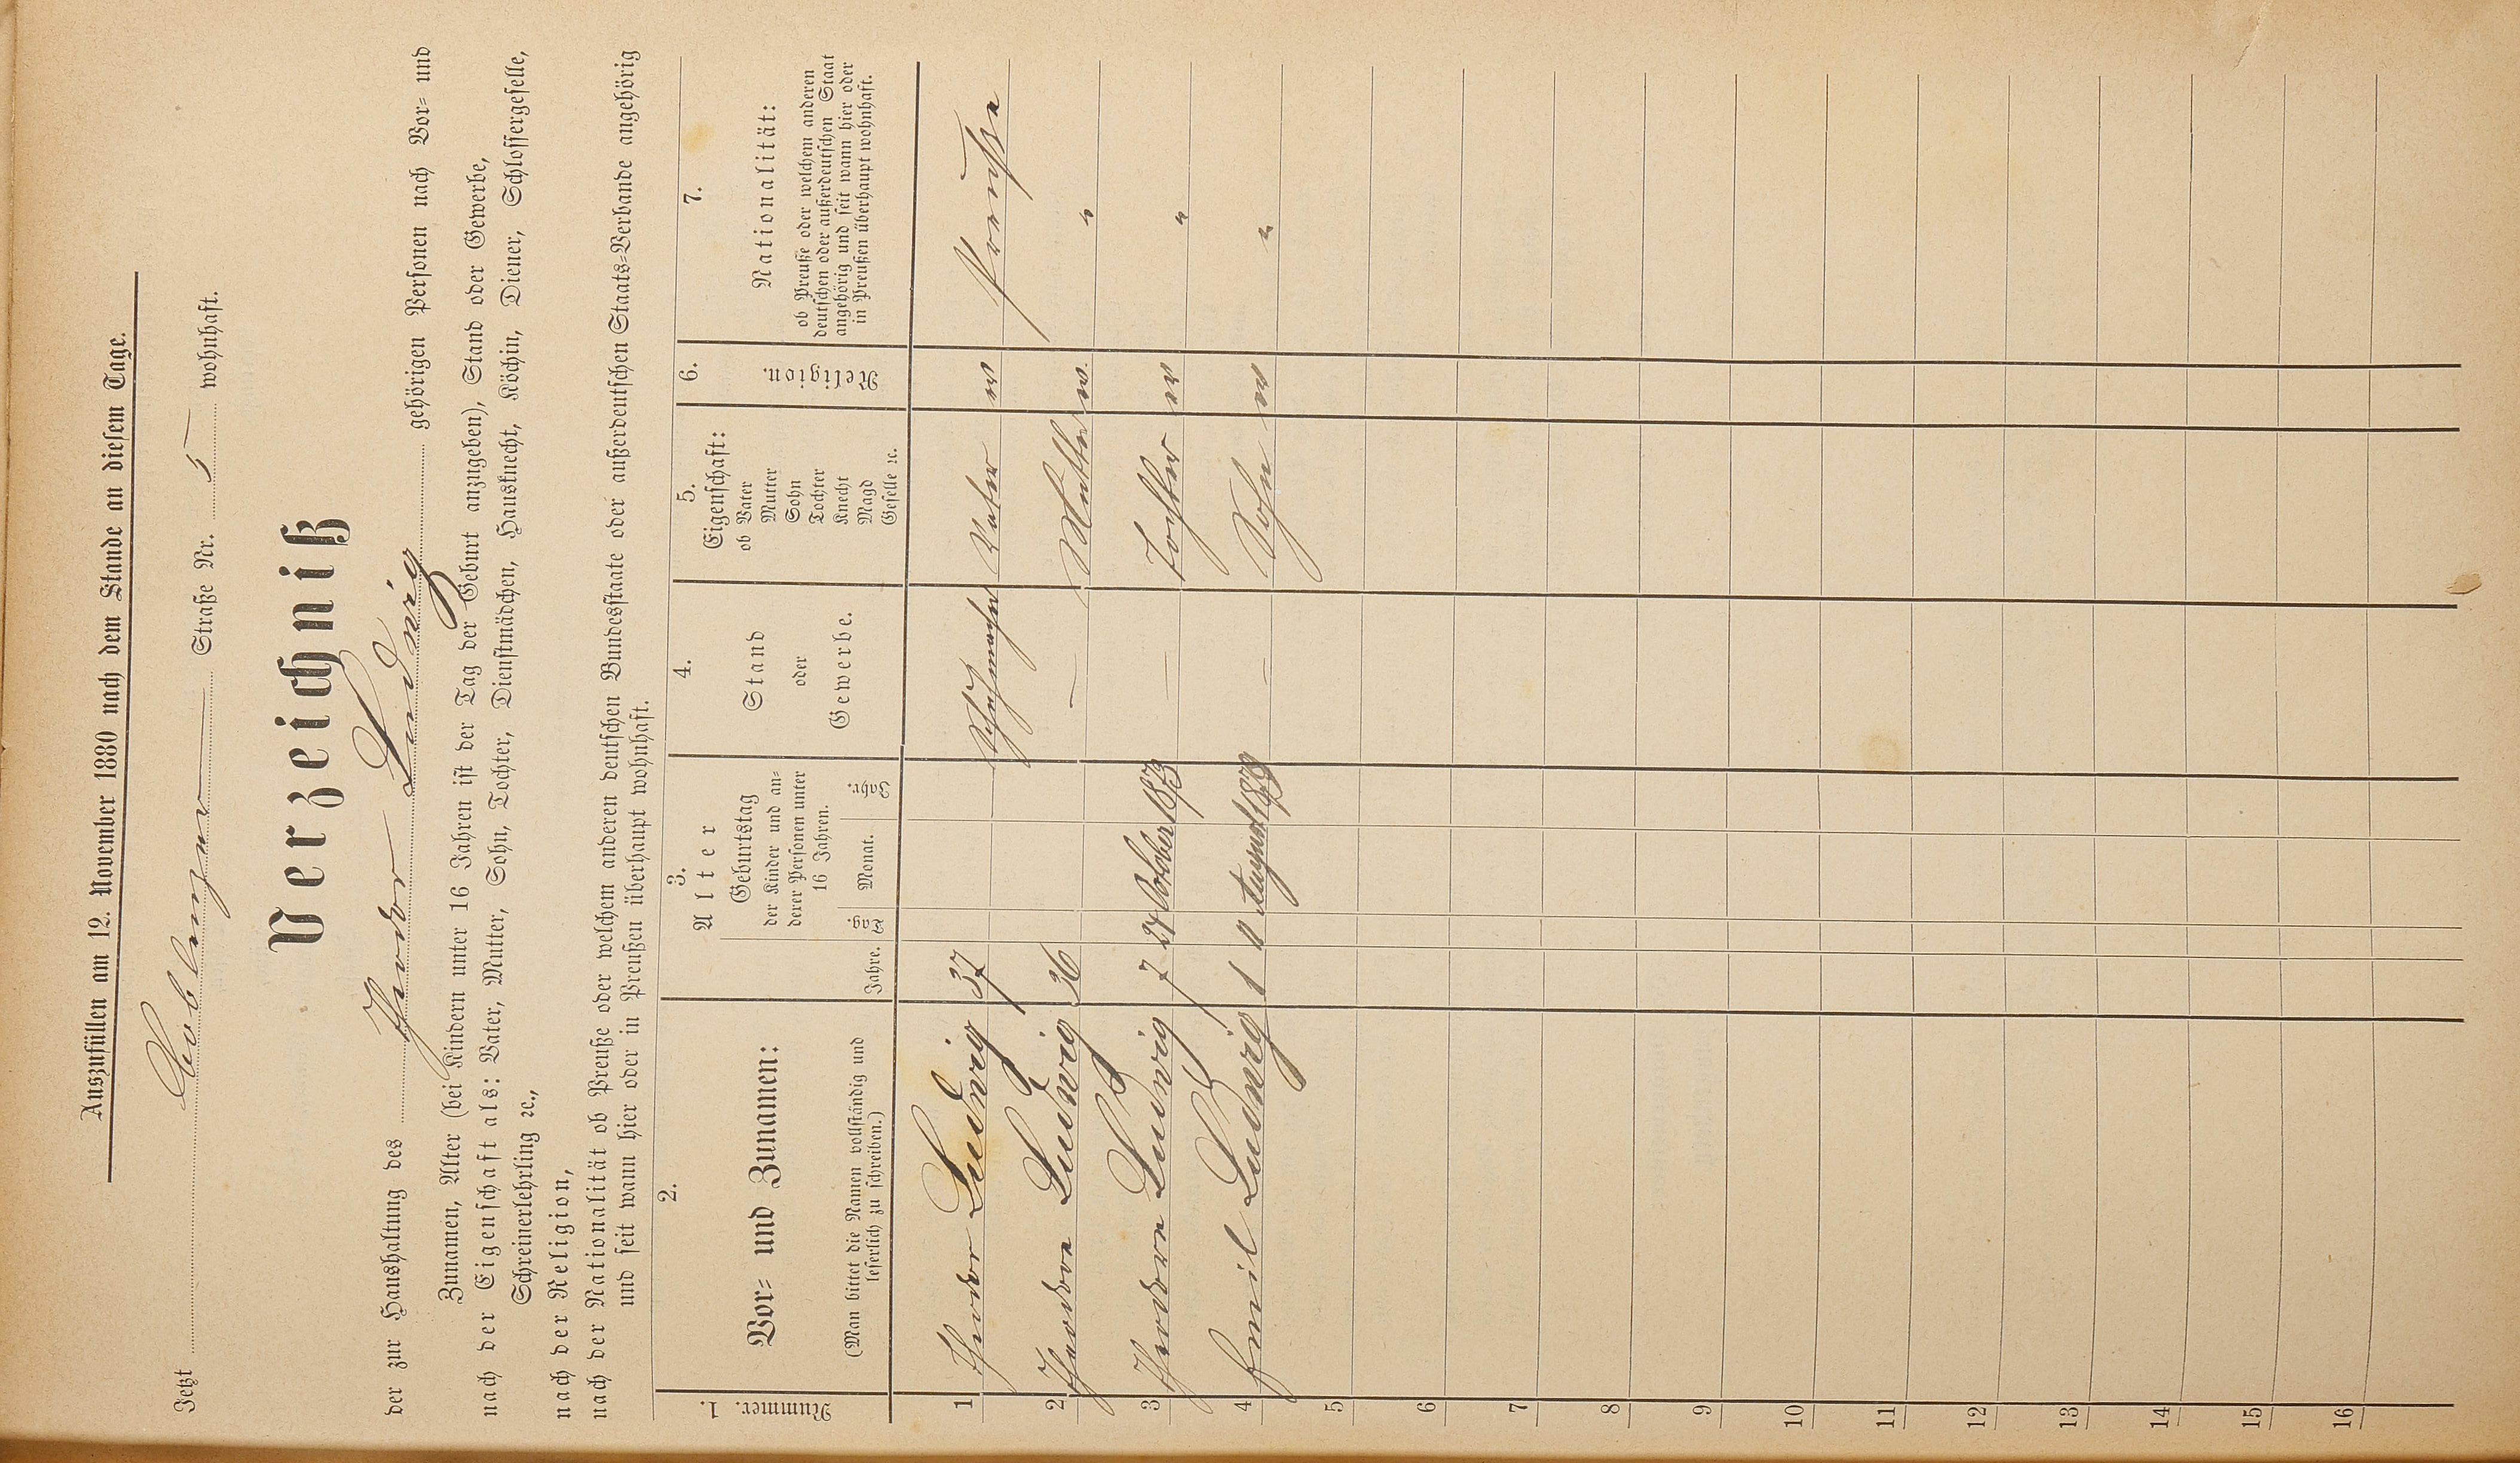 Auszufüllen am 12. November 1880 nach dem Stande an diesem Tage.
Jetzt Coblenzer Straße Nr. 5 wohnhaft.
Verzeichniß
der zur Haushaltung des Theodor Ludwig gehörigen Personen nach Vor= und
Zunamen, Alter (bei Kindern unter 16 Jahren ist der Tag der Geburt anzugeben), Stand oder Gewerbe,
nach der Eigenschaft als: Vater, Mutter, Sohn, Tochter, Dienstmädchen, Hausknecht, Köchin, Diener, Schlossergeselle,
Schreinerlehrling ꝛc.,
nach der Religion,
nach der Nationalität ob Preuße oder welchem anderen deutschen Bundesstaate oder außerdeutschen Staats=Verbande angehörig
und seit wann hier oder in Preußen überhaupt wohnhaft.
1. Nummer.
2.
Vor= und Zunamen:
(Man bittet die Namen vollständig und
leserlich zu schreiben.)
3.
Alter
Jahre.
Geburtstag
der Kinder und an=
derer Personen unter
16 Jahren.
Tag. Monat. Jahr.
4.
Stand
oder
Gewerbe.
5.
Eigenschaft:
ob Vater
Mutter
Sohn
Tochter
Knecht
Magd
Geselle ꝛc.
6.
Religion.
7.
Nationalität:
ob Preuße oder welchem anderen
deutschen oder außerdeutschen Staat
angehörig und seit wann hier oder
in Preußen überhaupt wohnhaft.
1 Theodor Ludwig 37 Schuhmacher Vater ev Preuße
2 Ludwig 36 — Mutter ev. "
3 Ludwig 7 October 1873 — Tochter ev "
4 Emil Ludwig 1 August 1879 — Sohn ev "
5
6
7
8
9
10
11
12
13
14
15
16